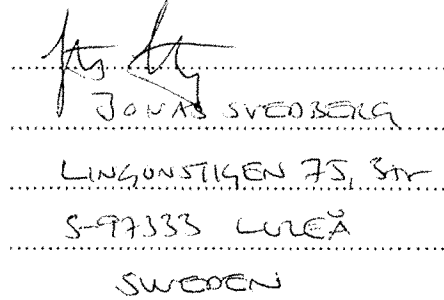 JONAS SVEDBERG
LINGONSTIGEN 75, 3tr
S-97333 LULEÅ
SWEDEN